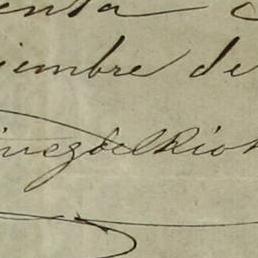 enta
iembre de
inez del Rio